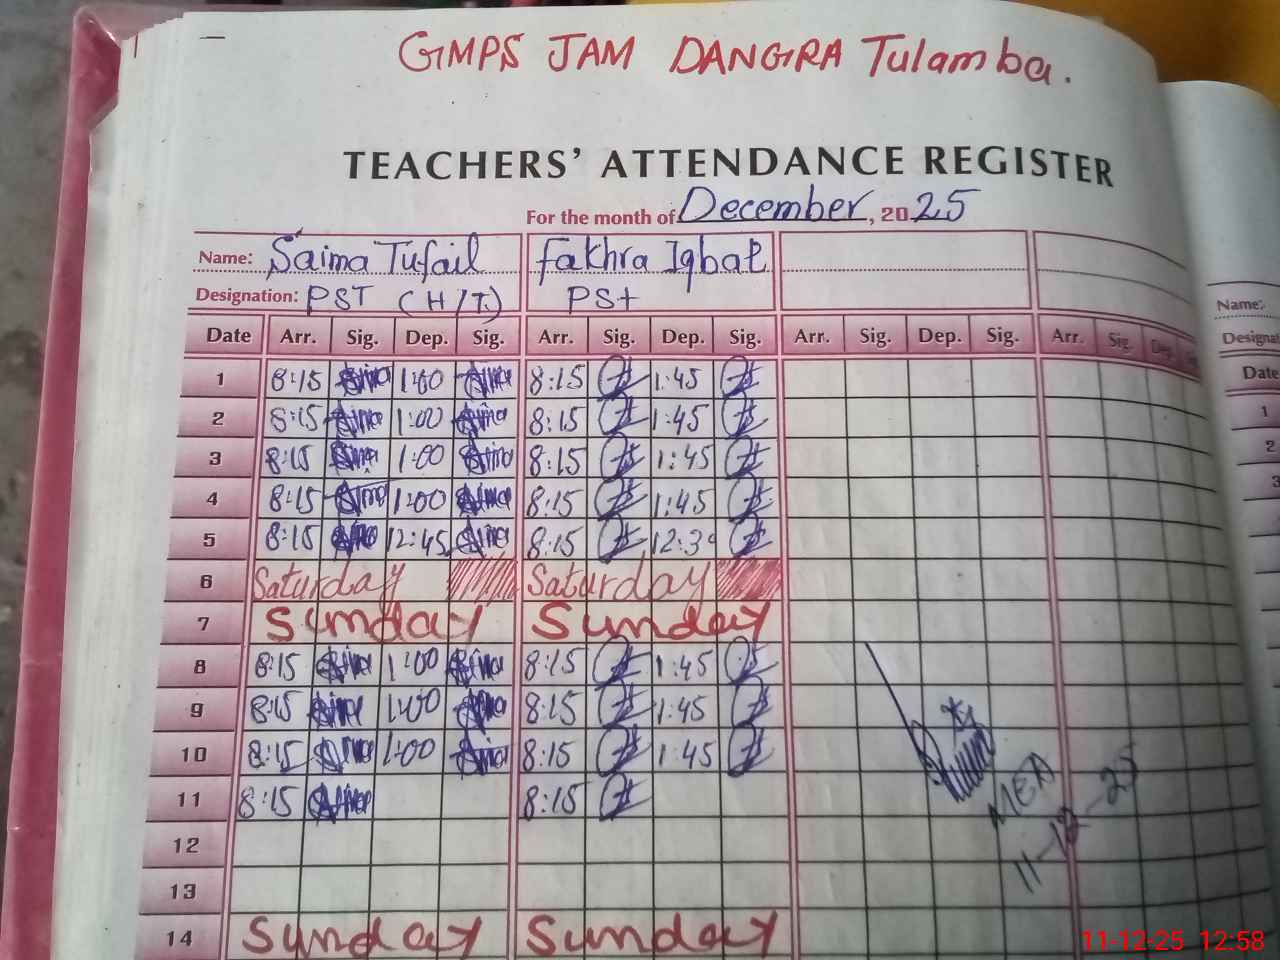 GMPS JAM DANGRA Tulamba.
TEACHERS' ATTENDANCE REGISTER
For the month of December, 2025
Name: Saima Tufail Fakhra Iqbal Name:
Designation: PST (H/T.) PSt
Date Arr. Sig. Dep. Sig. Arr. Sig. Dep. Sig. Arr. Sig. Dep. Sig. Arr. Sig. Dep. Date
1 8:15 1:00 8:15 1:45 1
2 8:15 1:00 8:15 1:45 2
3 8:15 1:00 8:15 1:45 3
4 8:15 1:00 8:15 1:45
5 8:15 12:45 8:15 12:30
6 Saturday Saturday
7 Sunday Sunday
8 8:15 1:00 8:15 1:45
9 8:15 1:00 8:15 1:45
10 8:15 1:00 8:15 1:45
11 8:15 8:15
MEA
11-12-25
12
13
14 Sunday Sunday
11-12-25 12:58